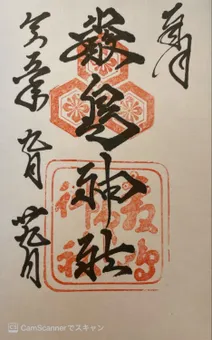 奉拝
厳島神社
令和五年 九月 廿九日
厳島神社
CamScannerでスキャン